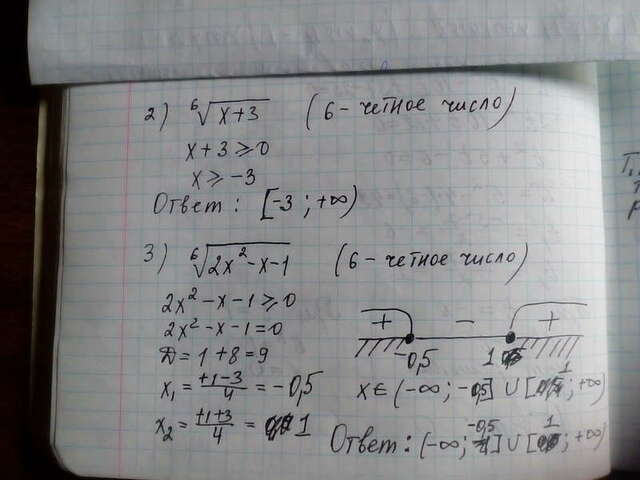 2) ⁶√(x+3) (6 - четное число)
x+3 ≥ 0
x ≥ -3
Ответ: [-3; +∞)
3) ⁶√(2x²-x-1) (6 - четное число)
2x²-x-1 ≥ 0
2x²-x-1=0
D = 1+8=9
x₁ = (+1-3)/4 = -0,5
x₂ = (+1+3)/4 = 1
+ - +
-0,5 1
x ∈ (-∞; -0,5] ∪ [1; +∞)
Ответ: (-∞; -0,5] ∪ [1; +∞)